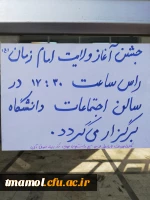 جشن آغاز ولایت امام زمان (ع)
راس ساعت ۱۷:۳۰ در
سالن اجتماعات دانشگاه
برگزار می گردد.
tmamol.cfu.ac.ir